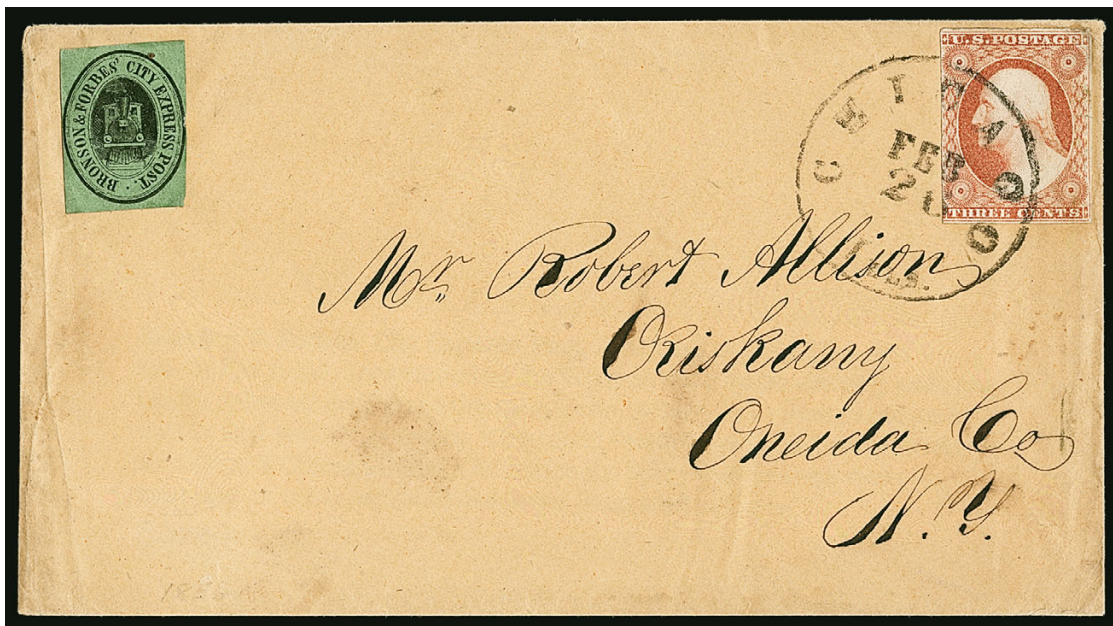 BRONSON & FORBES' CITY EXPRESS POST.
U.S. POSTAGE
THREE CENTS
CHICAGO
FEB
20
Mr Robert Allison
Oriskany
Oneida Co
N.Y.